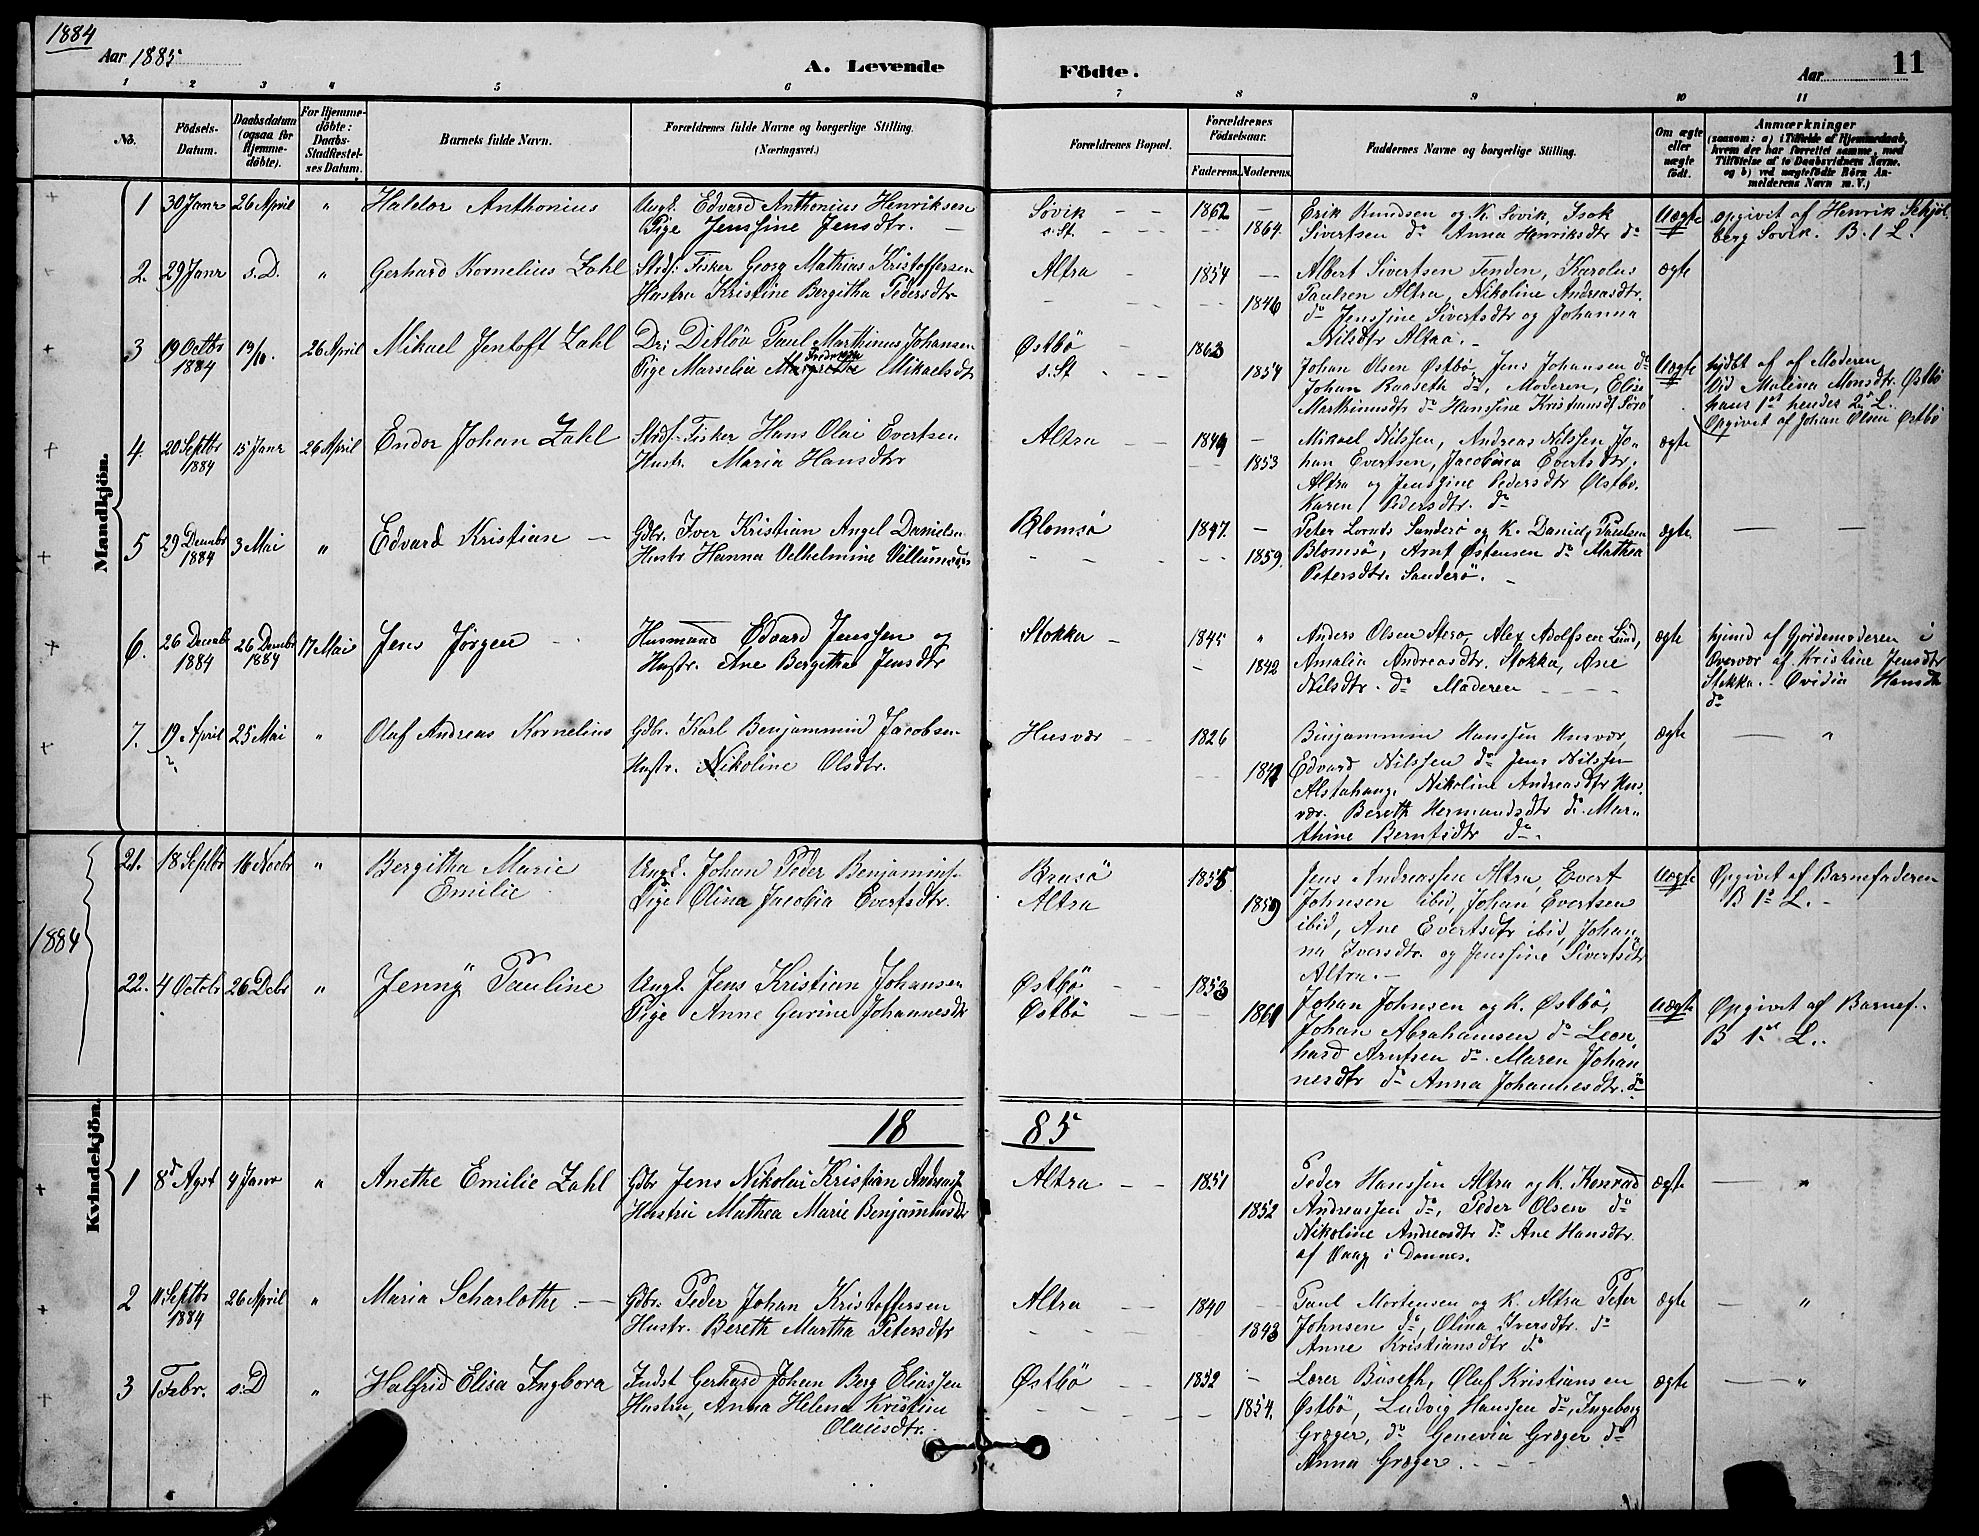 1884
Aar 1885
A. Levende
Födte.
Aar
11
1 2 3 4 5 6 7 8 9 10 11
No.
Födsels-Datum.
Daabsdatum (ogsaa for Hjemme-döbte).
For Hjemme-döbte: Daabs-Stadfestel-ses Datum.
Barnets fulde Navn.
Forældrenes fulde Navne og borgerlige Stilling. (Næringsvei.)
Forældrenes Bopæl.
Forældrenes Födselsaar.
Faderens.
Moderens.
Faddernes Navne og borgerlige Stilling.
Om ægte eller uægte födt.
Anmærkninger
(saasom: a) i Tilfælde af Hjemmedaab, hvem der har forrettet samme, med Tilföielse af to Daabsvidners Navne, og b) ved uægtefödte Börn An-melderens Navn m. V.)
Mandkjön.
1 30 Janr 26 April " Haldor Anthonius
Ungk. Edvard Anthonius Henriksen
Pige Jenssine Jensdtr.
Søvik
s. St.
1862
1864.
Erik Knudsen og K. Søvik, Isak
Sivertsen do Anna Henriksdtr do
Uægte
opgivet af Henrik Schjel-
berg Søvik. B. 1 L.
2. 29 Janr s. D. " Gerhard Kornelius Zahl
Strdf. Fisker Georg Mathias Kristoffersen
Hustru Kristine Bergitha Pedersdtr
Altra
1854
1846
Albert Sivertsen Tenden, Karolus
Paulsen Altra, Nikoline Andreasdtr.
do Jenssine Sivertsdtr og Johanna
Nilsdtr Altra.
ægte
3 19 Octbr 1884 19/10. 26 April Mikael Jentoft Zahl
Dr: Ditløv Paul Marthinus Johansen
Pige Marselie Mikaelsdtr
Østbø
s. St
1863
1854
Johan Olsen Østbø, Jens Johansen do
Johan Baaseth do, Moderen, Elise
Marthinusdtr do Hanssine Kristiansdt
Uægte
hjdbt af af Moderen
Vid Malena Monsdtr. Østbø
hans 1st hendes 2d L.
Opgivet af Johan Olsen Østbø
4. 20 Septbr 1884 15 Janr 26 April Endor Johan Zahl
Strdf. Fisker Hans Olai Evertsen
Hustr. Maria Hansdtr
Altra
1849
1853
Mikael Nilssen, Andreas Nilssen Jo-
han Evertsen, Jacobina Evertsdtr.
Altra og Jenssine Pedersdtr Østbø.
Karen Pedersdtr. do
ægte
5 29 Decembr 1884 3 Mai " Edvard Kristian
Gdbr. Iver Kristian Angel Danielsen
Hustr Hanna Velhelmine Villumsdtr
Blomsø
1847.
1859.
Peter Lornds Sanderö og K. Daniel Paulsen
Blomsø, Arnt Østensen do Mathea
Petersdtr. Sanderö.
ægte
6. 26 Decembr 1884 26 Decembr 1884 17 Mai Jens Jörgen
Husmand Edvard Jenssen og
Hustr. Ane Bergitha Jensdtr
Stokka
1845
1842
Anders Olsen Sterø, Alex Adolfsen Lund,
Amalia Andreasdtr. Stokka, Ane
Nilsdtr. do Moderen
ægte
af Gjordemoderen i
Overvær af Kristine Jensdtr
Stokka. Ovidia Hansdtr
do
7. 19 April 25 Mai " Olaf Andreas Kornelius
Gdbr. Karl Benjammind Jacobsen
Hustr. Nikoline Olsdtr.
Husvær
1826
1847
Binjammin Hanssen Husvær,
Edvard Nilssen do Jens Nilssen
Alstahaug, Nikoline Andreasdtr Hus-
vær. Bereth Hermandsdtr do Mar-
thine Berntsdtr do.
ægte
1884
21. 18 Septbr 16 Novbr " Bergitha Marie
Emilie
Ungk. Johan Peder Benjamins.
Pige Olina Jacobia Evertsdtr.
Brasö
Altra
1855.
1859
Jens Andreassen Altra, Evert
Johnsen ibid, Johan Evertsen
ibid, Ane Evertsdtr ibid, Johan-
na Iversdtr. og Jenssine Sivertsdtr
Altra.
Uægte
Opgivet af Barnefaderen
B 1st L.
22. 4 Octobr 26 Debr " Jenny Pauline
Ungk. Jens Kristian Johansen
Pige Anne Gurine Johannesdtr
Østbö
Østbö
1853
1861
Johan Johnsen og K. Østbö,
Johan Abrahamsen do Leon-
hard Arntsen do. Maren Johan-
nesdtr do Anna Johannesdtr. do
Uægte
Opgivet af Barnef.
B 1st L.
1885
Kvindekjön.
1 8d Agst 4 Janr " Anethe Emilie Zahl
Gdbr Jens Nikolai Kristian Andreass.
Hustru Mathea Marie Benjaminsdtr
Altra
1851
1852
Peder Hanssen Altra og K. Konrad
Andreassen do, Peder Olsen do
Nikoline Andreasdtr do Ane Hansdtr.
af Vaag i Dønnes.
ægte
2 11 Septbr 1884 26 April " Maria Scharlothe
Gdbr. Peder Johan Kristoffersen
Hustr. Bereth Martha Petersdtr
Altra
1840
1843
Paul Mortensen og K. Altra Peter
Johnsen do, Olina Iversdtr. do
Anne Kristiansdtr do
ægte
3 1 Febr. s. D " Halfrid Elisa Ingbora
Indst Gerhard Johan Berg Eliassen
Hustru, Anna Helena Kristine
Olausdtr.
Østbö
1852
1854.
Lærer Baseth, Olaf Kristiansen
Østbö, Ludvig Hanssen do, Ingeborg
Græger, do Genevia Græger do
Anna Græger.
ægte